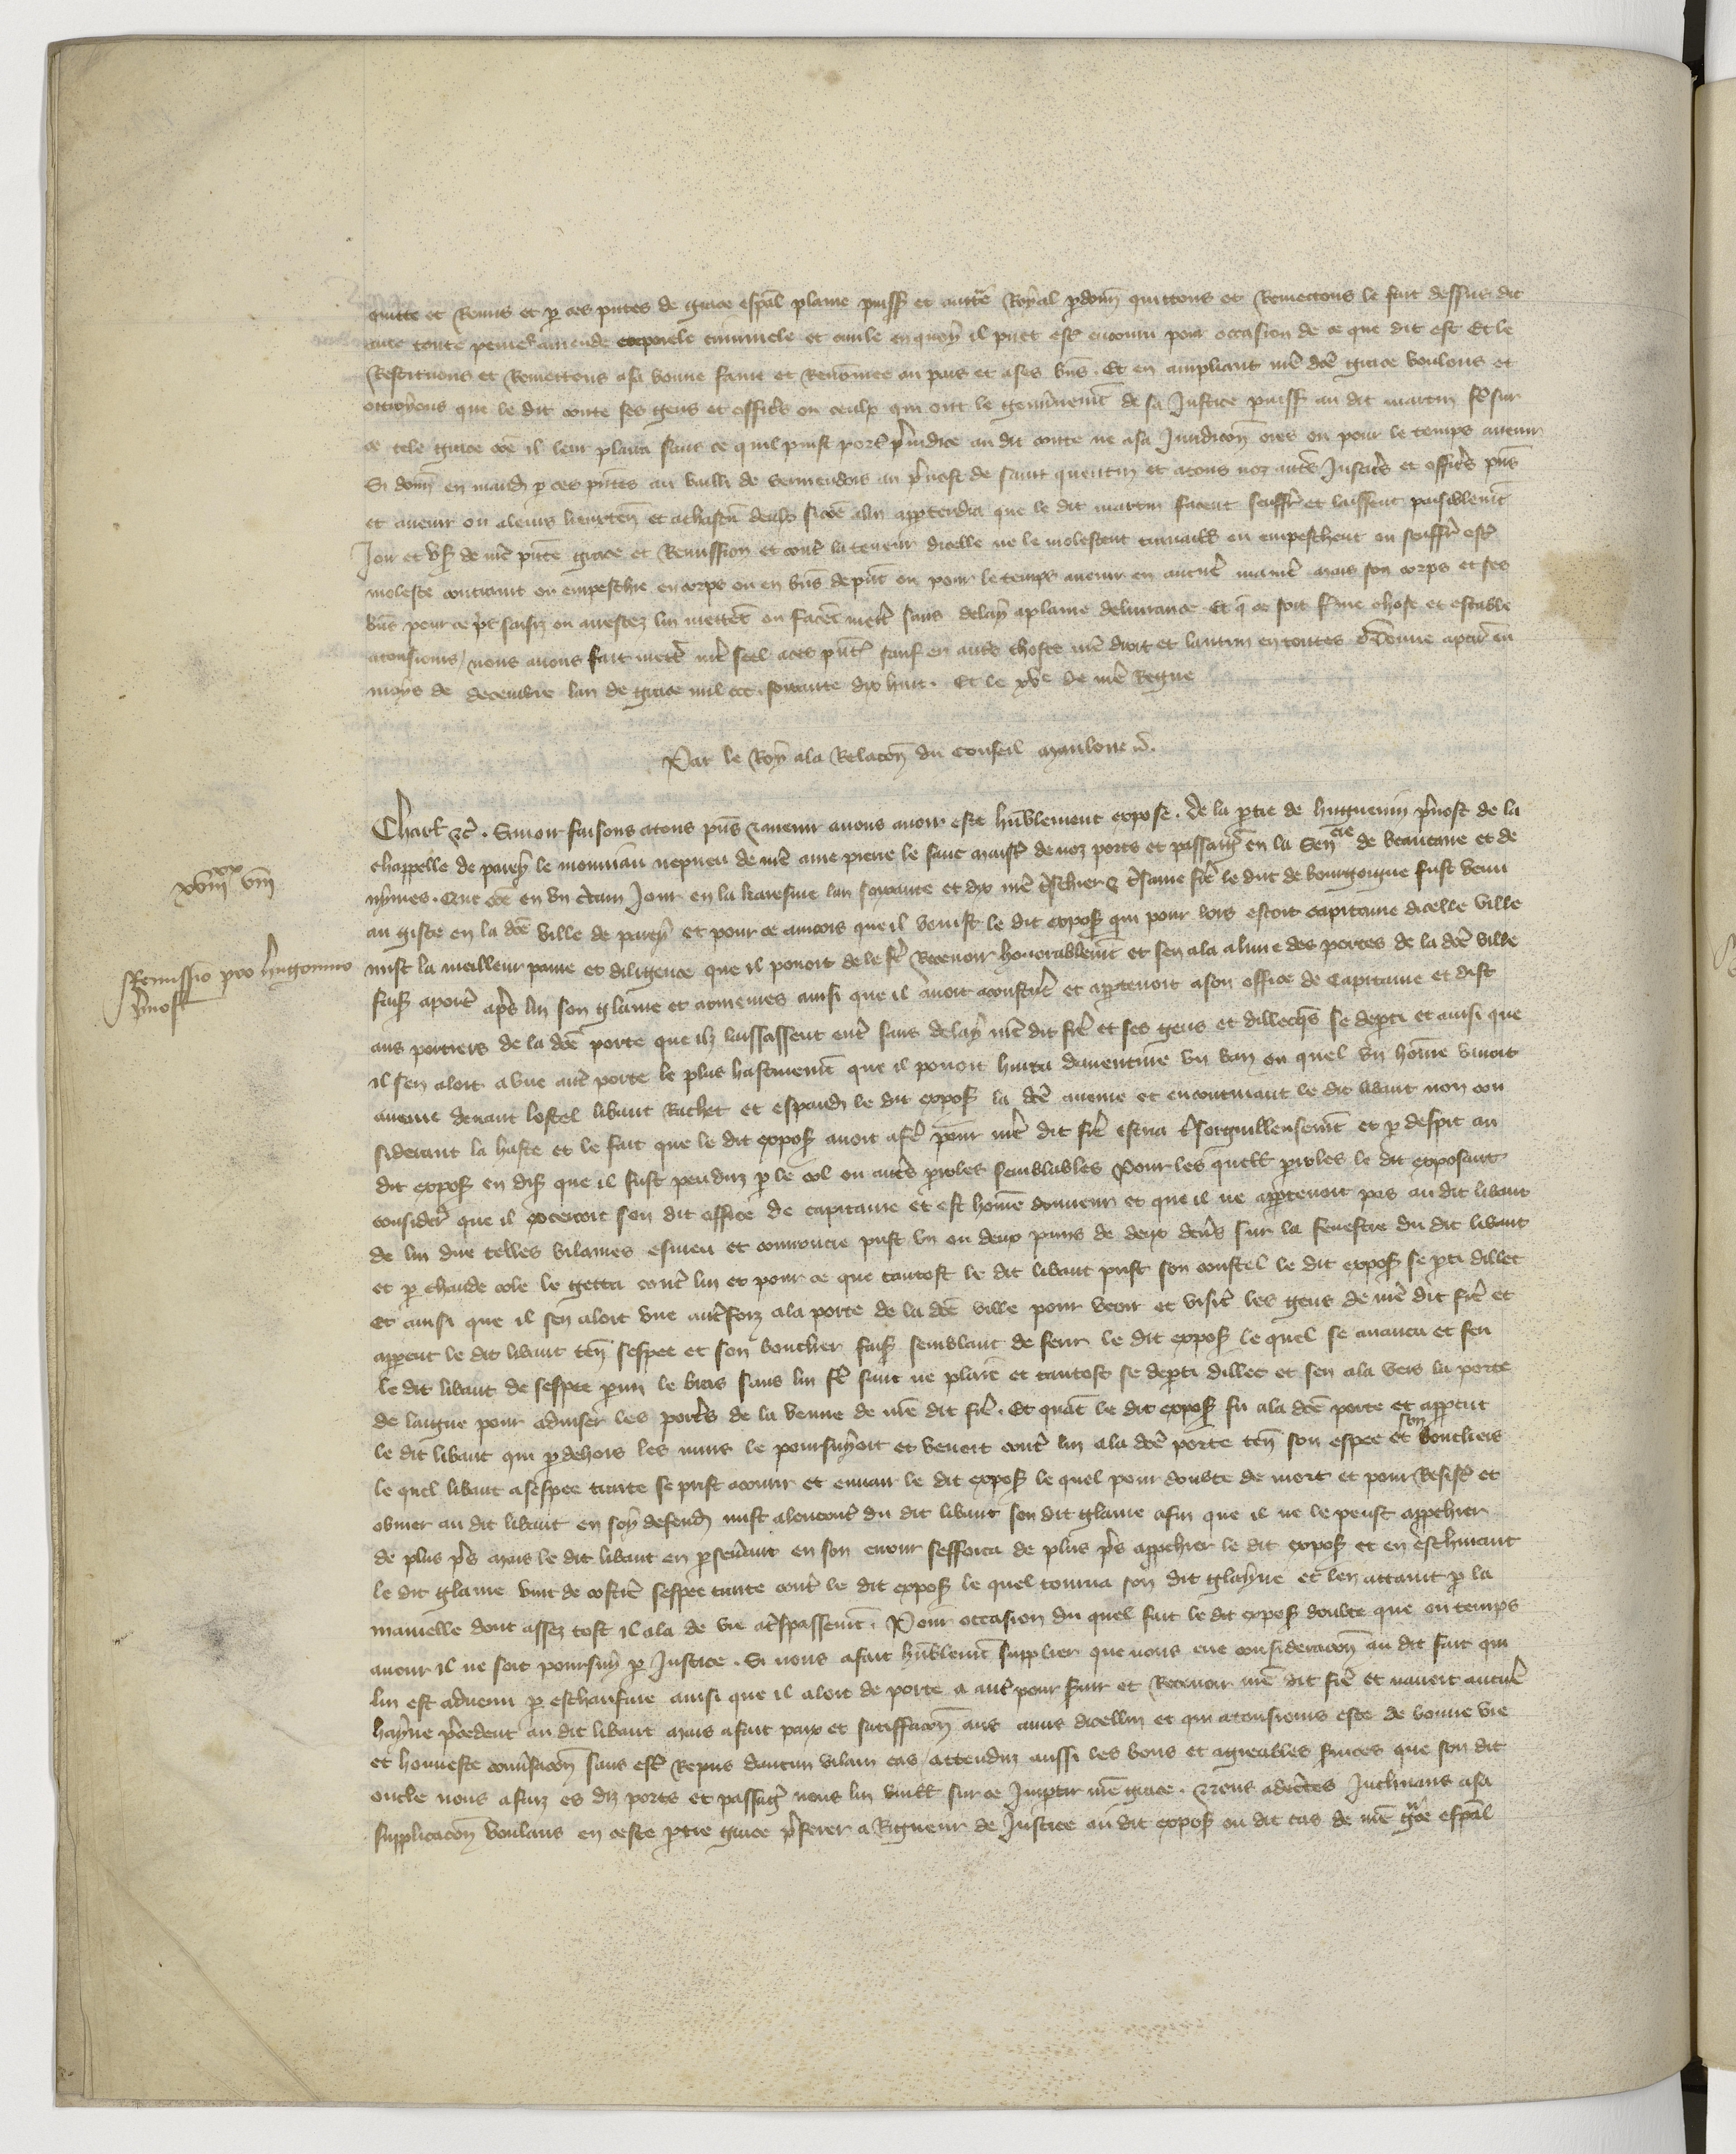 quitte et Remis et p ces pntes de grace espal plaine puiss et auctē Royal pdonn quittons et Remettons le fait dessus dit
auec toute peine & amende corporele criminele et ciuile en quoy il puet estr encouru pour occasion de ce que dit est Et le
Restituons et Remettons a sa bonne fame et Renōmee au pais et a ses biēs . Et en ampliant nrē dcē grace voulons et
ottroyons que le dit conte ses gens et officrs ou ceulx qui ont le gouūnemēt de sa Justice puiss au dit martin fē sur
ce tele grace cōe il leur plaira sans ce quil puist port p̄iudice au dit conte ne a sa Juridicōn ores ou pour le temps auenir
Si donn en mand p ces pntēs au bailli de vermendois au p̄uost de saint quentin et a tous noz autrs Justicrs et officrs pn̄s
et auenir ou a leurs lieuxten et a chascū deulx si cōe a lui apptendra que le dit martin facent seuffrr et laissent paisiblemēt
Joir et vs de nrē pntē grace et Remission et contr la teneur dicelle ne le molestent trauaill ou empeschent ou seuffrr estr
moleste contraint ou empeschie en corps ou en biēs de pn̄t ou pour le temps auenir en aucunē manierē mais son corps et ses
biēs pour ce pr saisiz ou arrestez lui mettēt ou facēt mettr sans delay a plaine deliurance Et q̄ ce soit ferme chose et estable
a tousiours / nous auons fait mettr nrē seel a ces pntēs sauf en autrs choses nrē droit et lautrui en toutes Donne a paris ou
moys de decembre lan de grace mil ccc soixante dix huit . Et le xve de nrē Regne
Par le Roy a la Relacōn du conseil Maulone n̄.
Charl &c . Sauoir faisons a tous pn̄s & auenir a nous auoir este hūblement expose . De la ptie de huguenin p̄uost de la
chappelle de parey le monniau nepueu de nrē ame pierre le sant maistr de noz pors et passaigē en la Senēcie de beaucaire et de
nymes . Que cōe en vn ctain Jour en la karesme lan soixante et dix nrē tschier & tsame frē le duc de bourgoigne fust venu
xviiixx viii
au giste en la dcē ville de parey et pour ce aincois que il venist le dit expos qui pour lors estoit capitaine dicelle ville
mist la meilleur paine et diligence que il pouoit de le fē Receuoir honorablemēt et sen ala a lune des portes de la dcē ville
Remissio pro hugonino
p̄uost
fais aportr aprs lui son glaiue et armeures ainsi que il auoit acoustumē et apptenoit a son office de Capitaine et dist
aus portiers de la dcē porte que ilz laissassent entr sans delay nrē dit frē et ses gens et dillecqs se depti et ainsi que
il sen aloit a vne autr porte le plus hastiuemēt que il pouoit hurta dauenture vn van ou quel vn hōme vanoit
auene deuant lostel libaut Rachet et espandi le dit expos la dcē auene et encontinant le dit libaut non con
siderant la haste et le fait que le dit expos auoit a fē pour nrē dit frē escria tsorguilleusemēt et p despit au
dit expos en dis que il fust penduz p le col ou autrs proles semblables Pour les quell proles le dit exposant
considerr que il excercoit son dit office de capitaine et est hōme donneur et que il ne apptenoit pas au dit libaut
de lui dire telles vilanies esmeu et courroucie prist vn ou deux pains de deux deners sur la fenestre du dit libaut
et p chaude cole le getta contr lui et pour ce que tantost le dit libaut prist son coustel le dit expos se pti dillec
Et ainsi que il sen aloit vne autrfoiz a la porte de la dcē ville pour veoir et visitr les gens de nrē dit frē et
apperceut le dit libaut ten sespee et son bouclier fais semblant de ferir le dit expos le quel se auanca et feri
le dit libaut de sespee pmi le bras sans lui fē sanc ne plaiē et tantost se depti dillec et sen ala vers la porte
de langue pour aduiser les portrs de la venue de nrē dit frē . Et quāt le dit expos fu a la dcē porte et apperceut
le dit libaut qui p dehors les murs le poursuyoit et venoit contr lui a la dcē porte ten son espee et son boucliers
le quel libaut a sespee traite se prist a courir et enuair le dit expos le quel pour doubte de mort et pour Resistr et
obuier au dit libaut en soy defend mist alencontr du dit libaut son dit glaiue afin que il ne le peust approchier
de plus prs mais le dit libaut en pseuerant en son erreur sefforca de plus prs approchier le dit expos et en eschiuant
le dit glaiue vint de costē sespee traite contr le dit expos le quel tourna son dit glayue et len attaint p la
mamelle dont assez tost il ala de vie a trspassemēt . Pour occasion du quel fait le dit expos doubte que ou temps
auenir il ne soit poursuy p Justice . Si nous a fait hūblemēt supplier que nous eue consideracōn au dit fait qui
lui est aduenu p eschaufure ainsi que il aloit de porte a autr pour seruir et Receuoir nrē dit frē et nauoit aucunē
hayne p̄cedent au dit libaut mais a fait paix et satisffacōn aus amis dicellui et qui a tousiours este de bonne vie
et honneste conūsacōn sans estr Repris daucun vilain cas / attenduz aussi les bons et agreables seruices que son dit
oncle nous a faiz es diz pors et passaigē nous lui vueill sur ce Jmptir nrē grace . Nous adecētes Jnclinans a sa
supplicacōn voulans en ceste ptie grace p̄ferer a Rigueur de Justice au dit expos ou dit cas de nrē grace espāl